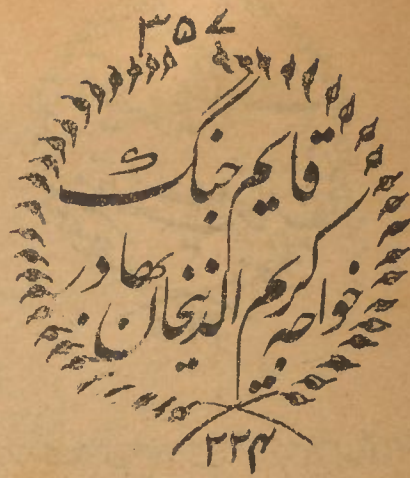 ۳۵۷
قایم جنگ
خواجہ کریم الدینخان بهادر
۲۲۴